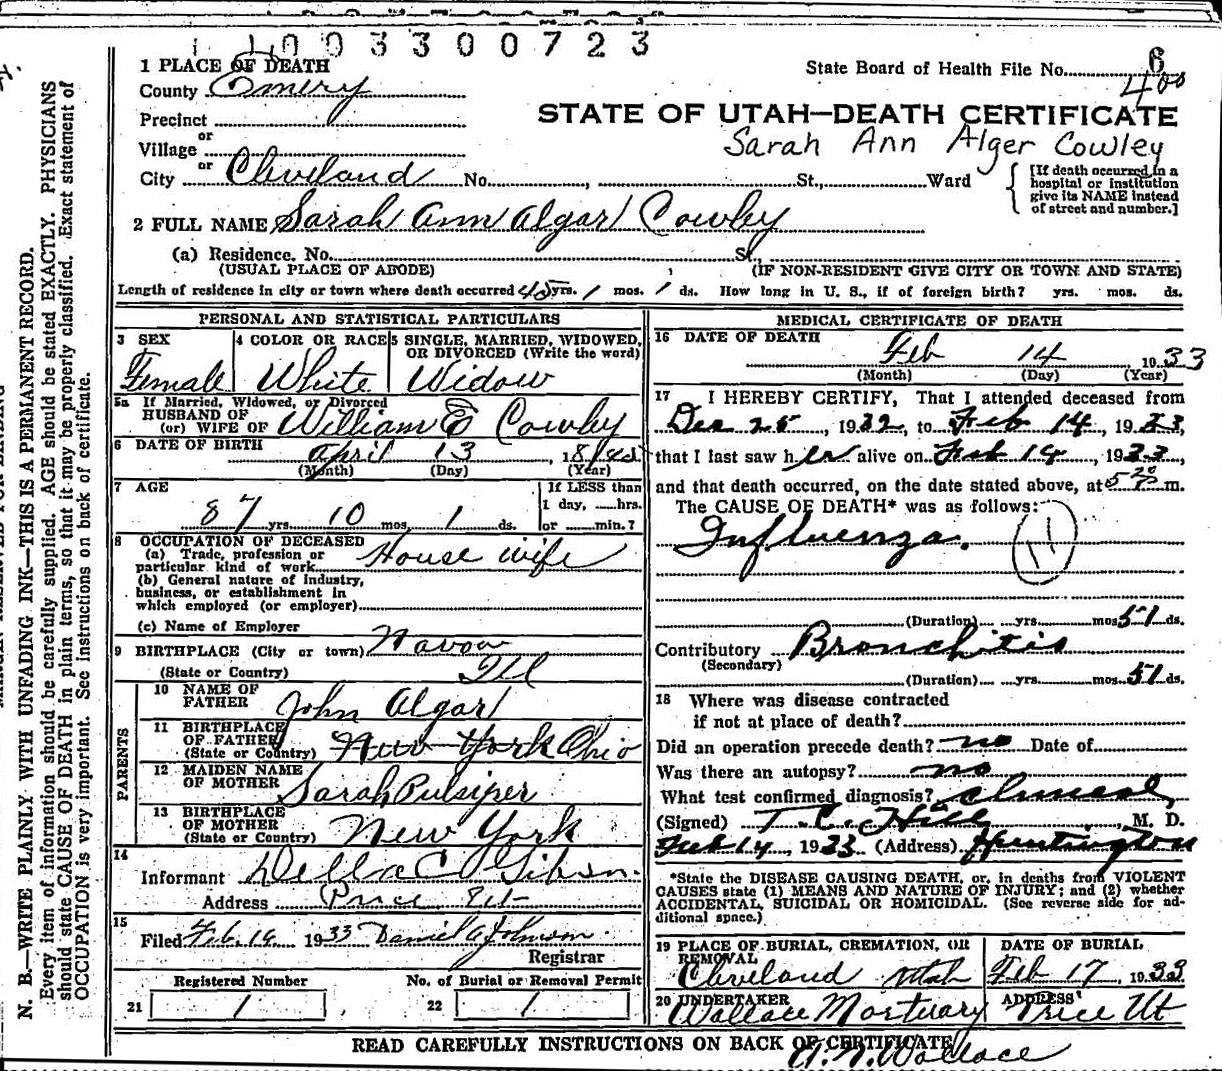 1003300723
1 PLACE OF DEATH
State Board of Health File No. 6
County Emery
400
Precinct
STATE OF UTAH—DEATH CERTIFICATE
or
Village
Sarah Ann Alger Cowley
or
City Cleveland No. , St., Ward
[If death occurred in a hospital or institution give its NAME instead of street and number.]
2 FULL NAME Sarah Ann Algar Cowley
(a) Residence. No. St.,
(USUAL PLACE OF ABODE) (IF NON-RESIDENT GIVE CITY OR TOWN AND STATE)
Length of residence in city or town where death occurred 45 yrs. 1 mos. 1 ds. How long in U. S., if of foreign birth? yrs. mos. ds.
PERSONAL AND STATISTICAL PARTICULARS
3 SEX 4 COLOR OR RACE 5 SINGLE, MARRIED, WIDOWED,
OR DIVORCED (Write the word)
Female White Widow
5a If Married, Widowed, or Divorced
HUSBAND OF
(or) WIFE OF William E Cowley
6 DATE OF BIRTH April 13, 1845
(Month) (Day) (Year)
7 AGE
If LESS than
1 day, hrs.
87 yrs. 10 mos. 1 ds. or min.?
8 OCCUPATION OF DECEASED
(a) Trade, profession or
particular kind of work House wife
(b) General nature of industry,
business, or establishment in
which employed (or employer)
(c) Name of Employer
9 BIRTHPLACE (City or town) Navoo
(State or Country) Ill
PARENTS
10 NAME OF
FATHER John Algar
11 BIRTHPLACE
OF FATHER
(State or Country) New York Ohio
12 MAIDEN NAME
OF MOTHER Sarah Pulsiper
13 BIRTHPLACE
OF MOTHER
(State or Country) New York
14
Informant Della C Gibson.
Address Price Ut
15
Filed Feb. 19 1933 Daniel A Johnson
Registrar
Registered Number No. of Burial or Removal Permit
21 1 22 1
MEDICAL CERTIFICATE OF DEATH
16 DATE OF DEATH
Feb 14 1933
(Month) (Day) (Year)
17 I HEREBY CERTIFY, That I attended deceased from
Dec 25, 1932, to Feb 14, 1933,
that I last saw her alive on Feb 14, 1933,
and that death occurred, on the date stated above, at m.
The CAUSE OF DEATH* was as follows:
Influenza. 11
(Duration) yrs. mos 51 ds.
Contributory Bronchitis
(Secondary)
(Duration) yrs. mos. 51 ds.
18 Where was disease contracted
if not at place of death?
Did an operation precede death? no Date of
Was there an autopsy? no
What test confirmed diagnosis? clinical
(Signed) T. C. Hill, M. D.
Feb 14, 1933 (Address) Huntington
*State the DISEASE CAUSING DEATH, or, in deaths from VIOLENT
CAUSES state (1) MEANS AND NATURE OF INJURY; and (2) whether
ACCIDENTAL, SUICIDAL OR HOMICIDAL. (See reverse side for ad-
ditional space.)
19 PLACE OF BURIAL, CREMATION, OR
REMOVAL
DATE OF BURIAL
Cleveland Utah Feb 17, 1933
20 UNDERTAKER ADDRESS
Wallace Mortuary Price Ut
READ CAREFULLY INSTRUCTIONS ON BACK OF CERTIFICATE
Wallace
N. B.—WRITE PLAINLY WITH UNFADING INK—THIS IS A PERMANENT RECORD.
Every item of information should be carefully supplied. AGE should be stated EXACTLY. PHYSICIANS
should state CAUSE OF DEATH in plain terms, so that it may be properly classified. Exact statement of
OCCUPATION is very important. See instructions on back of certificate.